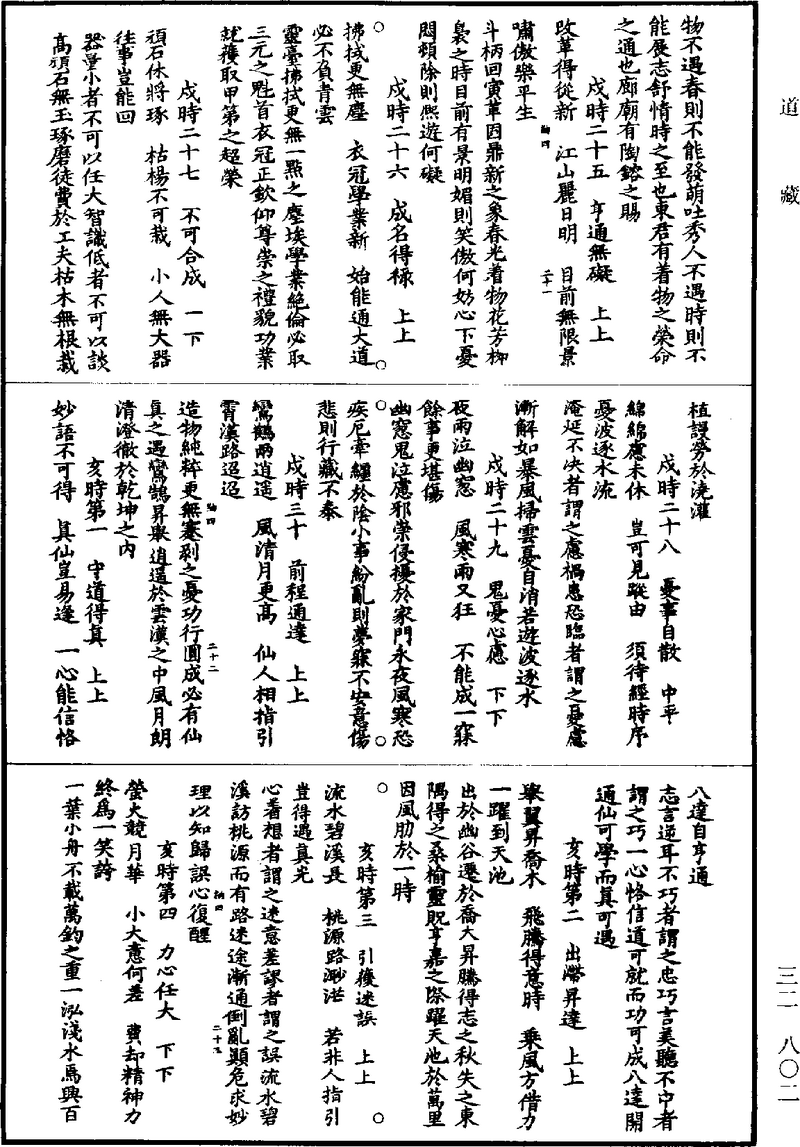 道藏
物不遇春則不能發萌吐秀人不遇時則不
能展志舒情時之至也東君有着物之榮命
之通也廊廟有陶鎔之賜
戍時二十五　亨通無礙　上上
改革得從新　江山麗日明　目前無限景
嘯傲樂平生
斗柄回寅革因鼎新之象春光着物花芳柳
裊之時目前有景明媚則笑傲何妨心下憂
悶頓除則熙遊何礙
戍時二十六　成名得祿　上上
拂拭更無塵　衣冠學業新　始能通大道
必不負青雲
靈臺拂拭更無一點之塵埃學業絶倫必取
三元之魁首衣冠正欽仰尊崇之禮貌功業
就獲取甲第之超榮
戍時二十七　不可合成　一下
頑石休將琢　枯楊不可栽　小人無大器
往事豈能回
器量小者不可以任大智識低者不可以談
高頑石無玉琢磨徒費於工夫枯木無根栽
植謾勞於澆灌
戍時二十八　憂事自散　中平
綿綿慮未休　豈可見蹤由　須待經時序
憂波逐水流
淹延不决者謂之慮禍患恐臨者謂之憂慮
漸解如暴風掃雲憂自消若遊波逐水
戍時二十九　鬼憂心慮　下下
夜雨泣幽窓　風寒雨又狂　不能成一寐
餘事更堪傷
幽窓鬼泣慮邪祟侵擾於家門永夜風寒恐
疾厄牽纏於陰小事紛亂則夢寐不安意傷
悲則行藏不泰
戍時三十　前程通達　上上
鸞鶴兩逍遥　風清月更高　仙人相指引
霄漢路迢迢
造物純粹更無蹇剥之憂功行圓成必有仙
真之遇鸞鶴昇舉逍遥於雲漢之中風月朗
清澄徹於乾坤之内
亥時第一　守道得真　上上
妙語不可得　真仙豈易逢　一心能信恪
八達自亨通
志言逆耳不巧者謂之忠巧言美聽不中者
謂之巧一心恪信道可就而功可成八達開
通仙可學而真可遇
亥時第二　出滯昇達　上上
舉翼昇喬木　飛騰得意時　乘風方借力
一躍到天池
出於幽谷遷於喬大昇騰得志之秋失之東
隅得之桑榆靈貺亨嘉之際躍天池於萬里
因風肋於一時
亥時第三　引復迷誤　上上
流水碧溪長　桃源路渺茫　若非人指引
豈得遇真光
心着想者謂之迷意差謬者謂之誤流水碧
溪訪桃源而有路迷途漸通倒亂顛危求妙
理以知歸誤心復醒
亥時第四　力心任大　下下
螢火競月華　小大意何差　費却精神力
終爲一笑誇
一葉小舟不載萬鈞之重一泓淺水焉興百
三二　八〇二